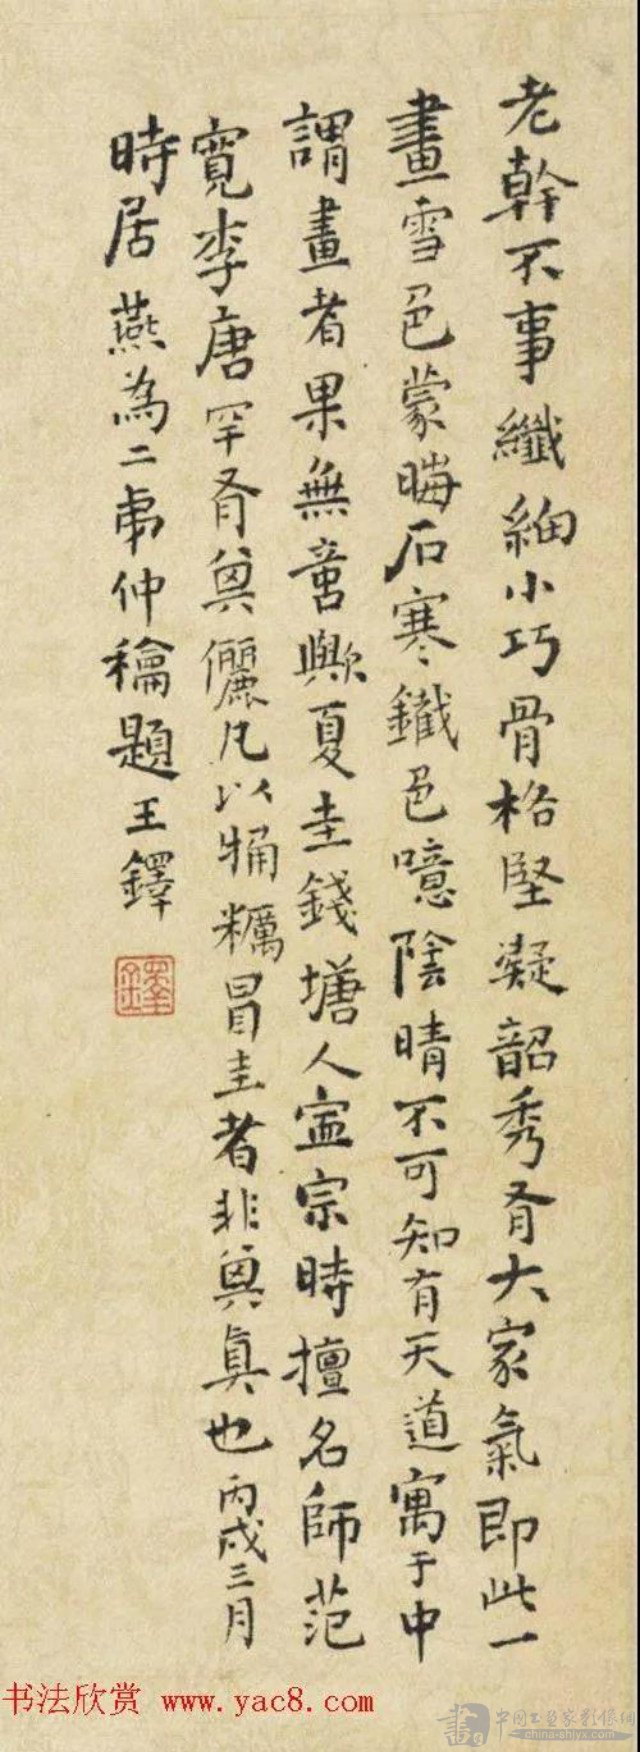 老幹不事纖細小巧骨格堅凝韶秀有大家氣即此一
畫雪色蒙晦石寒鐵色噫陰晴不可知有天道寓于中
謂畫者果無意歟夏圭錢塘人寧宗時擅名師范
寬李唐罕有其儷凡以觕糲冒圭者非其真也丙戌三月
時居燕為二弟仲龢題王鐸
书法欣赏 www.yac8.com
中国书画家影像网
china-shjyx.com